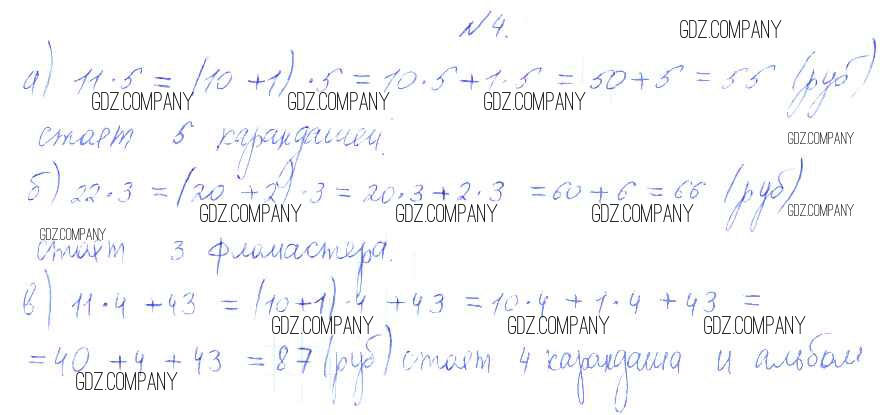 № 4. GDZ.COMPANY
а) 11·5 = (10 + 1)·5 = 10·5 + 1·5 = 50 + 5 = 55 (руб)
GDZ.COMPANY GDZ.COMPANY GDZ.COMPANY
стоят 5 карандашей. GDZ.COMPANY
б) 22·3 = (20 + 2)·3 = 20·3 + 2·3 = 60 + 6 = 66 (руб)
GDZ.COMPANY GDZ.COMPANY GDZ.COMPANY GDZ.COMPANY
GDZ.COMPANY
стоят 3 фломастера.
в) 11·4 + 43 = (10+1)·4 + 43 = 10·4 + 1·4 + 43 =
GDZ.COMPANY GDZ.COMPANY GDZ.COMPANY
= 40 + 4 + 43 = 87 (руб) стоят 4 карандаша и альбом
GDZ.COMPANY